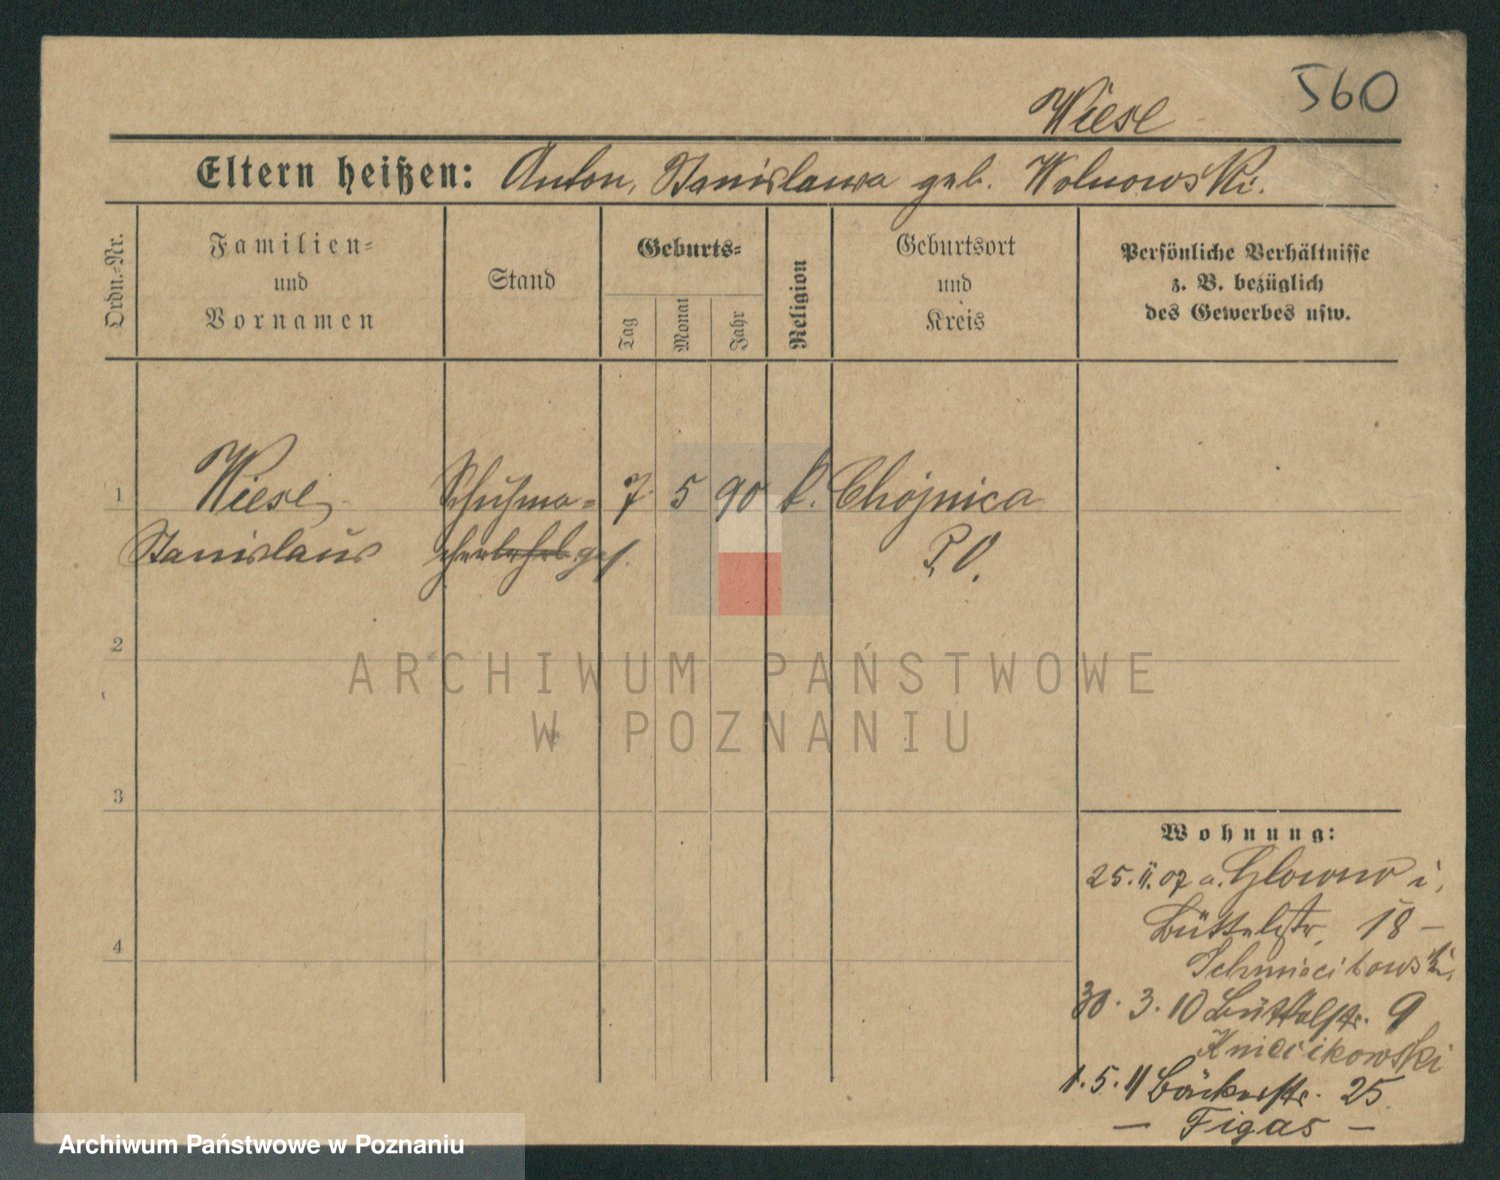 560
Wiese
Eltern heißen: Anton, Stanislawa geb. Wolnowski.
Ordn.-Nr.
Familien-
und
Vornamen
Stand
Geburts-
Tag
Monat
Jahr
Religion
Geburtsort
und
Kreis
Persönliche Verhältnisse
z. B. bezüglich
des Gewerbes usw.
1 Wiese Schuhma- 7 5 90 k. Chojnica
Stanislaus cherlehrl. ges. P. O.
2
3
4
ARCHIWUM PAŃSTWOWE
W POZNANIU
Wohnung:
25. 11. 07 a. Glowno i,
Büttelstr. 18 -
30. 3. 10 Büttelstr. 9
Kniecikowski
1. 5. 11 Bäckerstr. 25
- Figas -
Archiwum Państwowe w Poznaniu